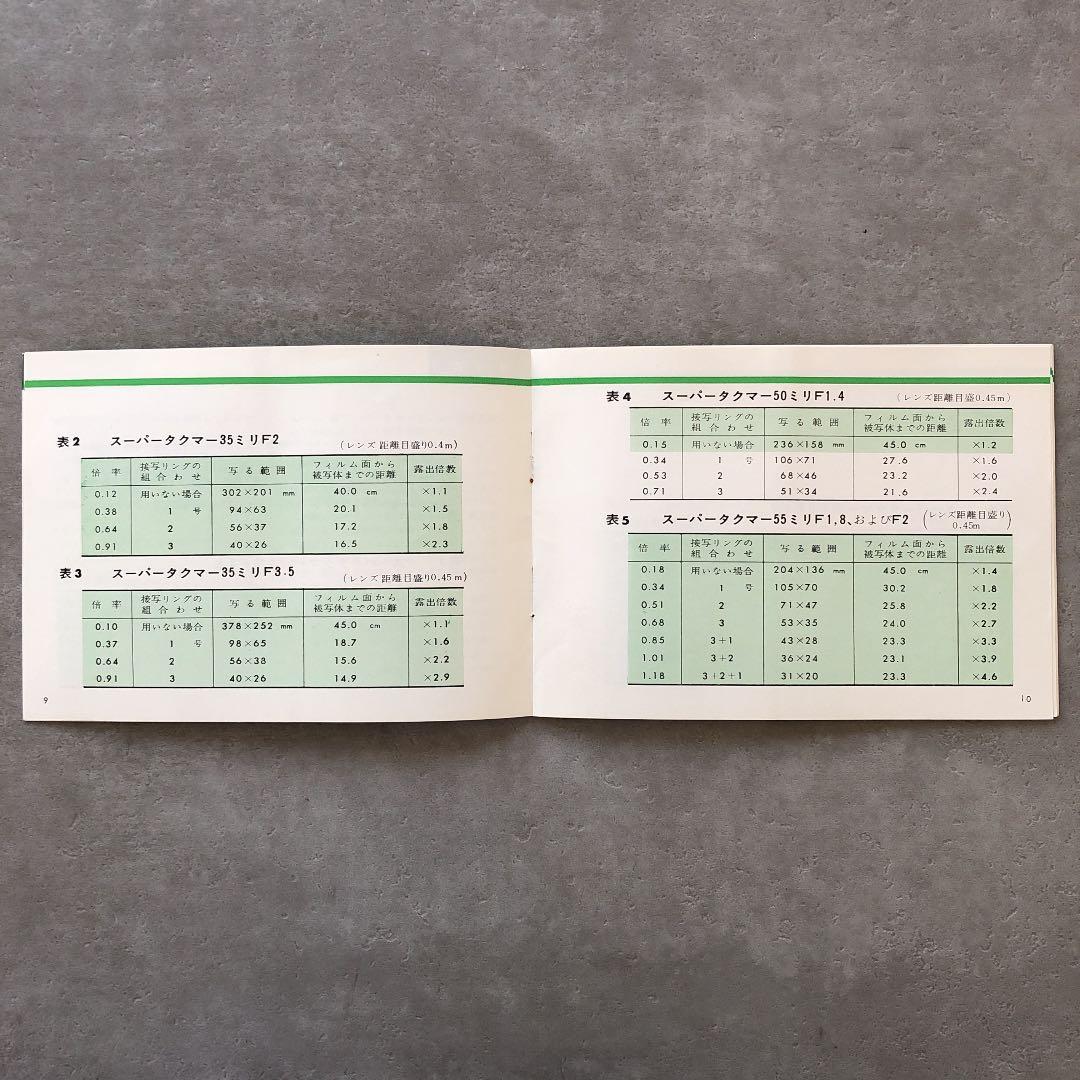 表2 スーパータクマー35ミリF2 (レンズ距離目盛0.4m)
倍率 接写リングの組合わせ 写る範囲 フィルム面から被写体までの距離 露出倍数
0.12 用いない場合 302×201 mm 40.0 cm ×1.1
0.38 1号 94×63 20.1 ×1.5
0.64 2 56×37 17.2 ×1.8
0.91 3 40×26 16.5 ×2.3
表3 スーパータクマー35ミリF3.5 (レンズ距離目盛り0.45m)
倍率 接写リングの組合わせ 写る範囲 フィルム面から被写体までの距離 露出倍数
0.10 用いない場合 378×252 mm 45.0 cm ×1.1
0.37 1号 98×65 18.7 ×1.6
0.64 2 56×38 15.6 ×2.2
0.91 3 40×26 14.9 ×2.9
9
表4 スーパータクマー50ミリF1.4 (レンズ距離目盛0.45m)
倍率 接写リングの組合わせ 写る範囲 フィルム面から被写体までの距離 露出倍数
0.15 用いない場合 236×158 mm 45.0 cm ×1.2
0.34 1号 106×71 27.6 ×1.6
0.53 2 68×46 23.2 ×2.0
0.71 3 51×34 21.6 ×2.4
表5 スーパータクマー55ミリF1,8、およびF2 (レンズ距離目盛り0.45m)
倍率 接写リングの組合わせ 写る範囲 フィルム面から被写体までの距離 露出倍数
0.18 用いない場合 204×136 mm 45.0 cm ×1.4
0.34 1号 105×70 30.2 ×1.8
0.51 2 71×47 25.8 ×2.2
0.68 3 53×35 24.0 ×2.7
0.85 3+1 43×28 23.3 ×3.3
1.01 3+2 36×24 23.1 ×3.9
1.18 3+2+1 31×20 23.3 ×4.6
10